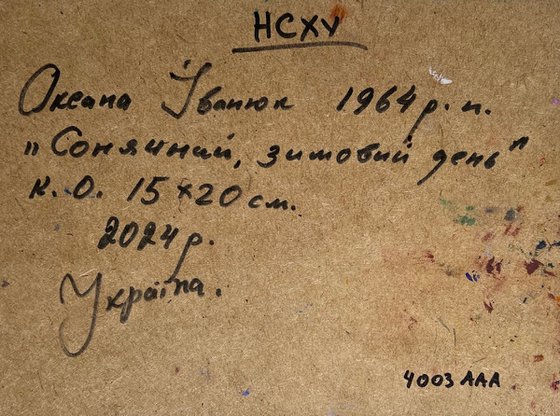 НСХУ
Оксана Іванюк 1964 р. н.
„Сонячний, зимовий день"
к. о. 15×20 см.
2024 р.
Україна.
4003 AAA